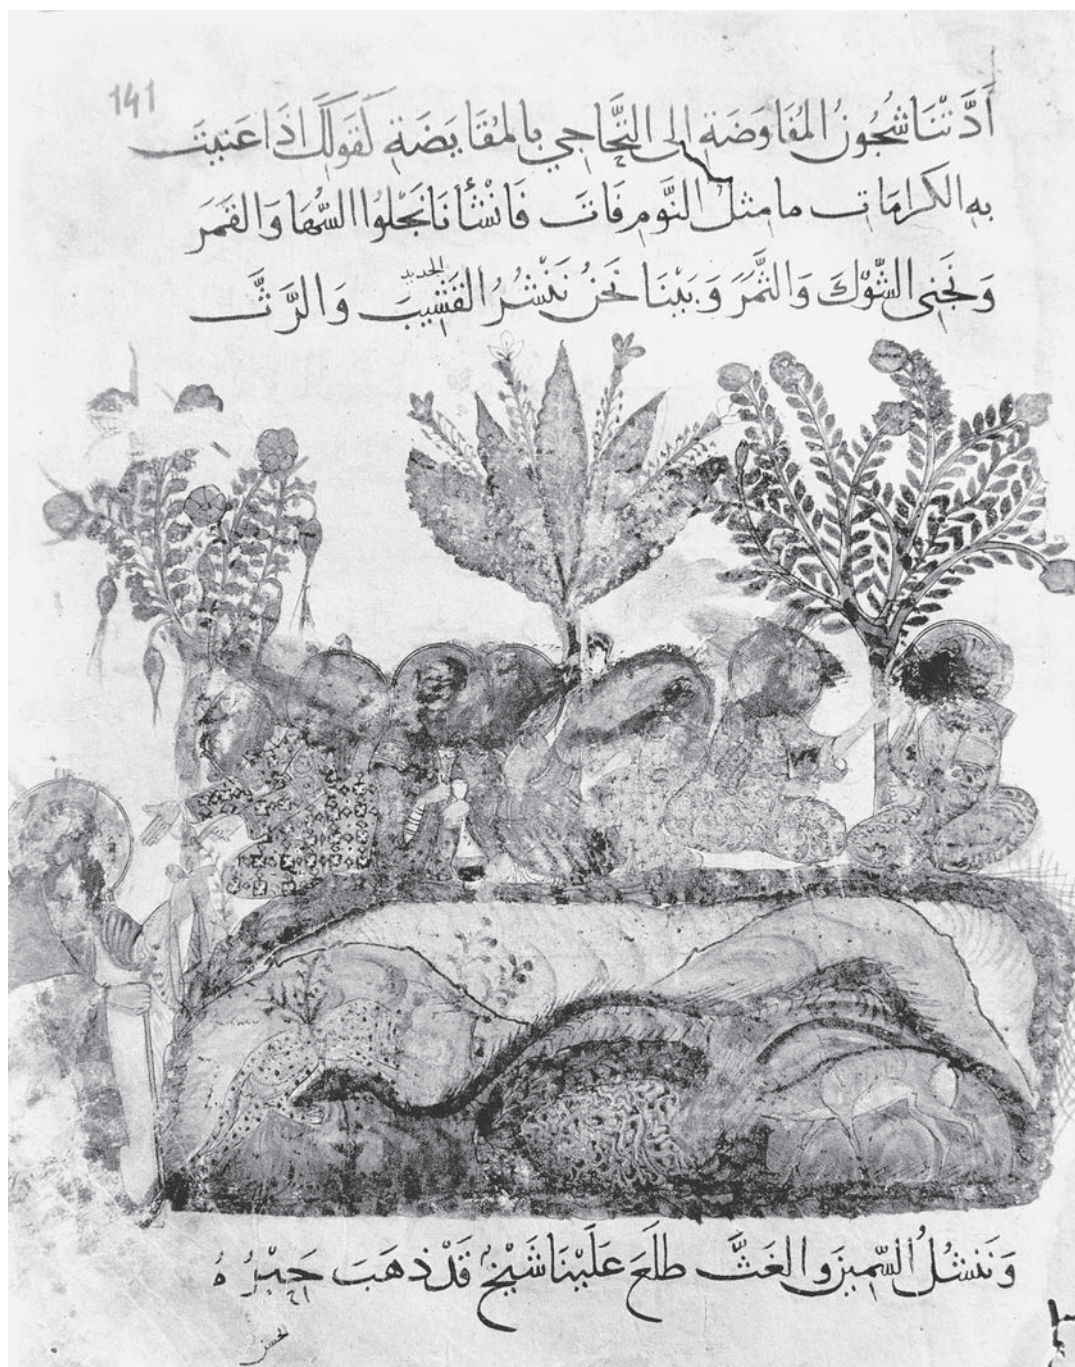 141
أَدَّتْنَا شُجُونُ المُفَاوَضَةِ إلى التَّحَاجِي بِالمُقَايَضَةِ كَقَولِكَ اذَا عَنيتَ
بِهِ الكَرامَاتِ مَا مثلُ النَّومِ فَاتَ فَانْشَأنَا نَجْلُوا السُّهَا وَالقَمَر
وَنَجْنِى الشَّوْكَ وَالثَّمَرَ وَبَيْنَا نَحْنُ نَنْشُرُ القَشِيبَ وَالرَّثَّ
الجديد
وَنَنْشُلُ السَّمِينَ وَالغَثَّ طَلَعَ عَلَيْنَا شَيْخٌ قَدْ ذهَبَ حِبْرُهُ
الحسن